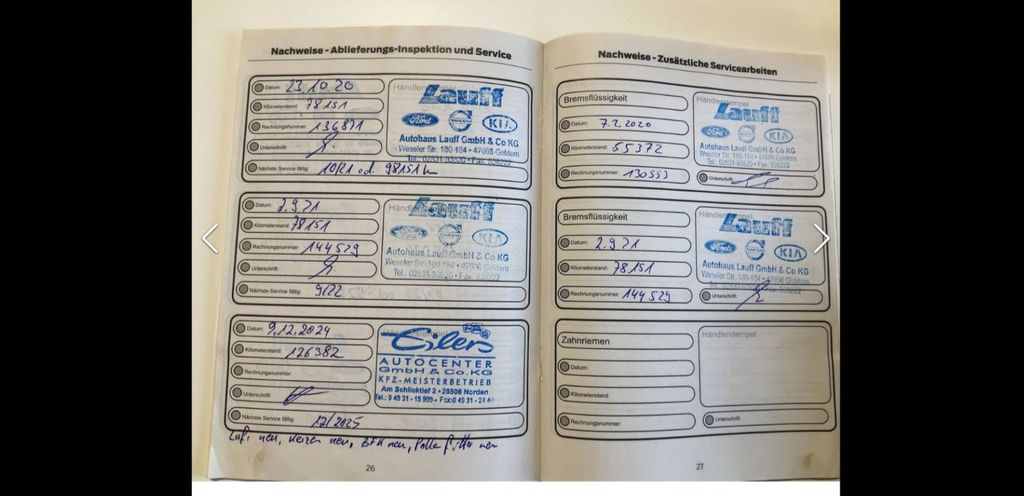 Nachweise - Ablieferungs-Inspektion und Service
Datum: 23.10.20
Kilometerstand: 78151
Rechnungsnummer: 136871
Unterschrift:
Nächste Service fällig: 10/21 od. 98151 km
Händlerstempel
Lauff
Ford VOLVO KIA
Autohaus Lauff GmbH & Co KG
Weseler Str. 180-184 • 47608 Geldern
Datum: 2.9.21
Kilometerstand: 78151
Rechnungsnummer: 144529
Unterschrift:
Nächste Service fällig: 9/22
Lauff
Ford KIA
Autohaus Lauff GmbH & Co KG
Weseler Str. 180-184 • 47608 Geldern
Datum: 9.12.2024
Kilometerstand: 126382
Rechnungsnummer:
Unterschrift:
Nächste Service fällig: 12/2025
Eilers
AUTOCENTER
GmbH & Co. KG
KFZ-MEISTERBETRIEB
Am Schlicktief 2 • 26506 Norden
neu, Kerzen neu, neu, neu
26
Nachweise - Zusätzliche Servicearbeiten
Bremsflüssigkeit
Datum: 7.2.2020
Kilometerstand: 55372
Rechnungsnummer: 130553
Händlerstempel
Lauff
Ford KIA
Autohaus Lauff GmbH & Co KG
Weseler Str. 180-184 • 47608 Geldern
Unterschrift:
Bremsflüssigkeit
Datum: 2.9.21
Kilometerstand: 78151
Rechnungsnummer: 144529
Lauff
Ford KIA
Autohaus Lauff GmbH & Co KG
Weseler Str. 180-184 • 47608 Geldern
Unterschrift:
Zahnriemen
Datum:
Kilometerstand:
Rechnungsnummer:
Händlerstempel
Unterschrift:
27